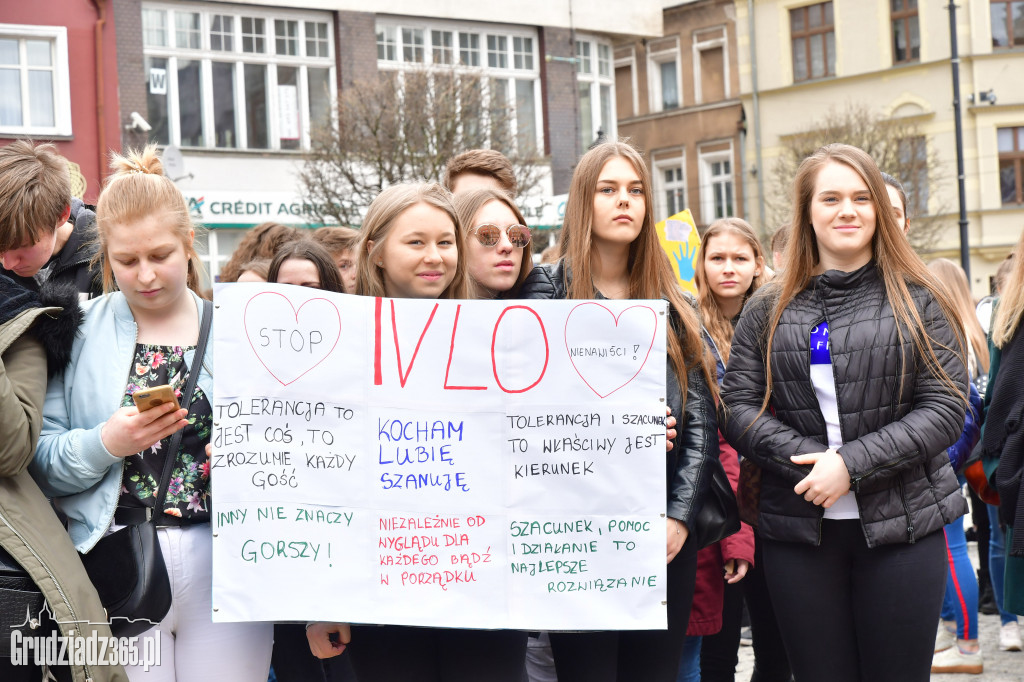 W
CRÉDIT AGRI
STOP
HEJTOM
IV LO
STOP
NIENAWIŚCI !
TOLERANCJA TO
JEST COŚ, TO
ZROZUMIE KAŻDY
GOŚĆ
KOCHAM
LUBIĘ
SZANUJĘ
TOLERANCJA I SZACUNEK
TO WŁAŚCIWY JEST
KIERUNEK
INNY NIE ZNACZY
GORSZY!
NIEZALEŻNIE OD
WYGLĄDU DLA
KAŻDEGO BĄDŹ
W PORZĄDKU
SZACUNEK, POMOC
I DZIAŁANIE TO
NAJLEPSZE
ROZWIĄZANIE
Grudziadz365.pl